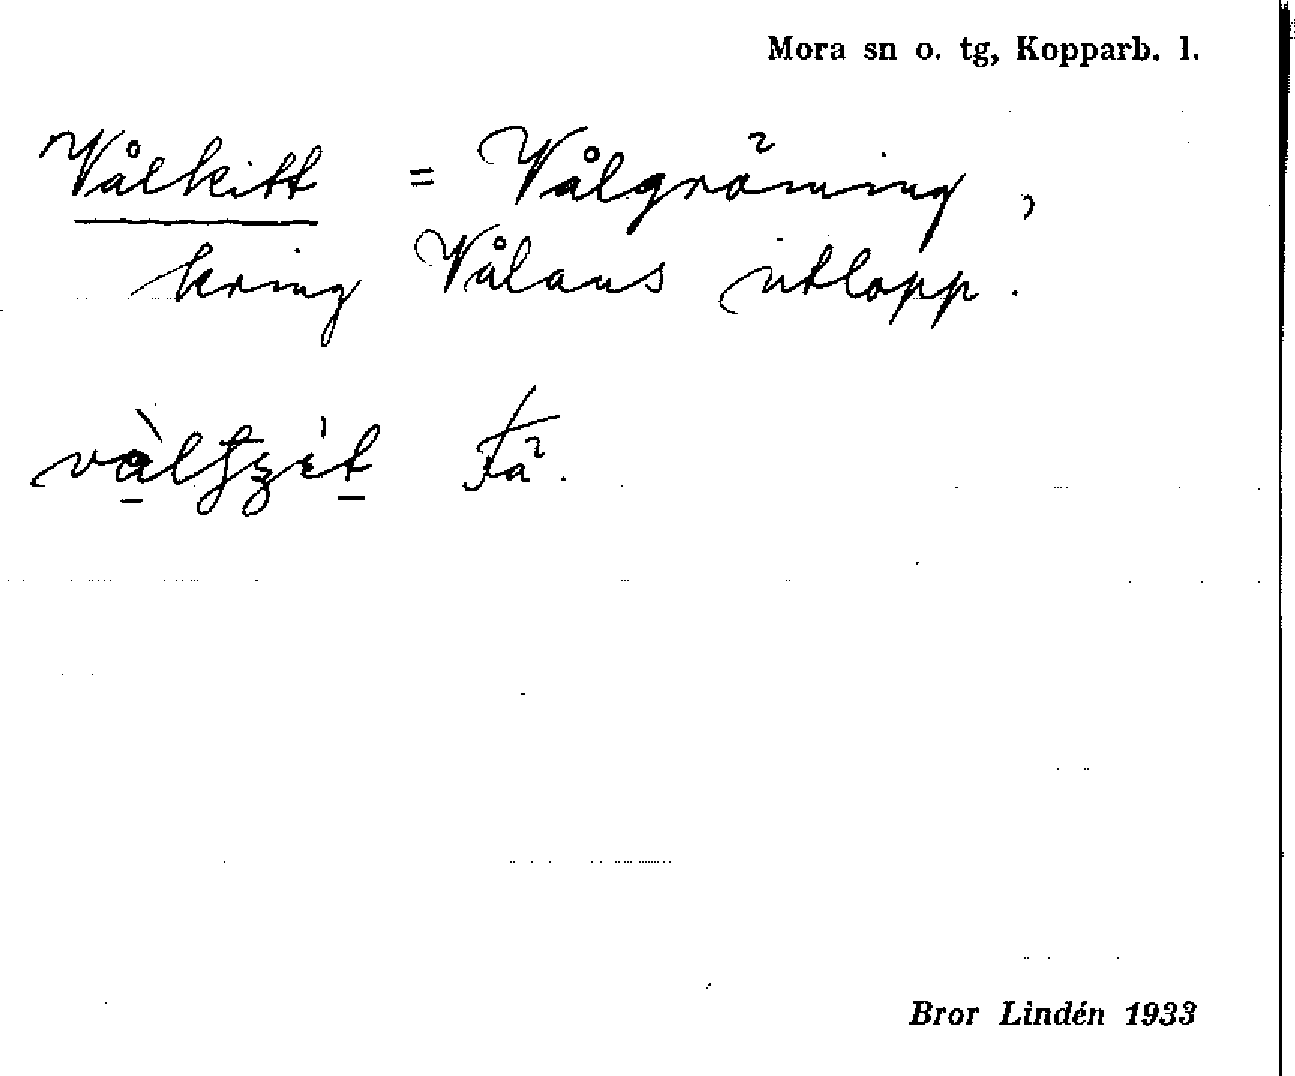 Mora sn o. tg, Kopparb. l.
Vålkitt = Vålgröning,
kring Vålans utlopp.
Bror Lindén 1933